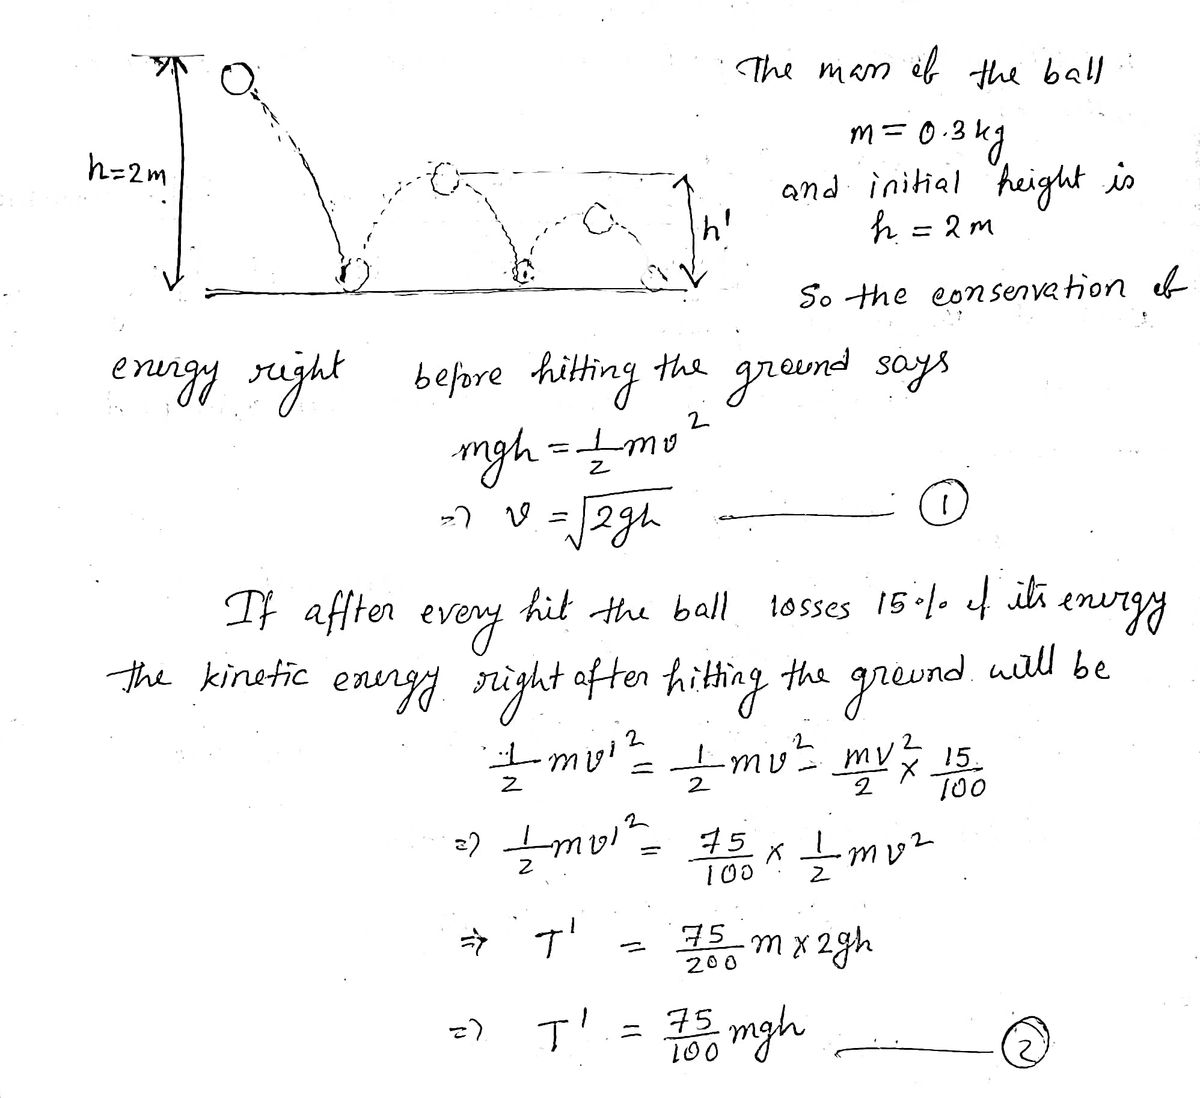 The mass of the ball
m = 0.3 kg
and initial height is
h = 2 m
h=2m
h'
So the conservation of
energy right before hitting the ground says
mgh = 1/2 mv²
=> v = √2gh ——— ①
If affter every hit the ball losses 15% of its energy
the kinetic energy right after hitting the ground will be
1/2 mv'² = 1/2 mv² - mv²/2 × 15/100
=> 1/2 mv'² = 75/100 × 1/2 mv²
=> T' = 75/200 m × 2gh
=> T' = 75/100 mgh ——— ②